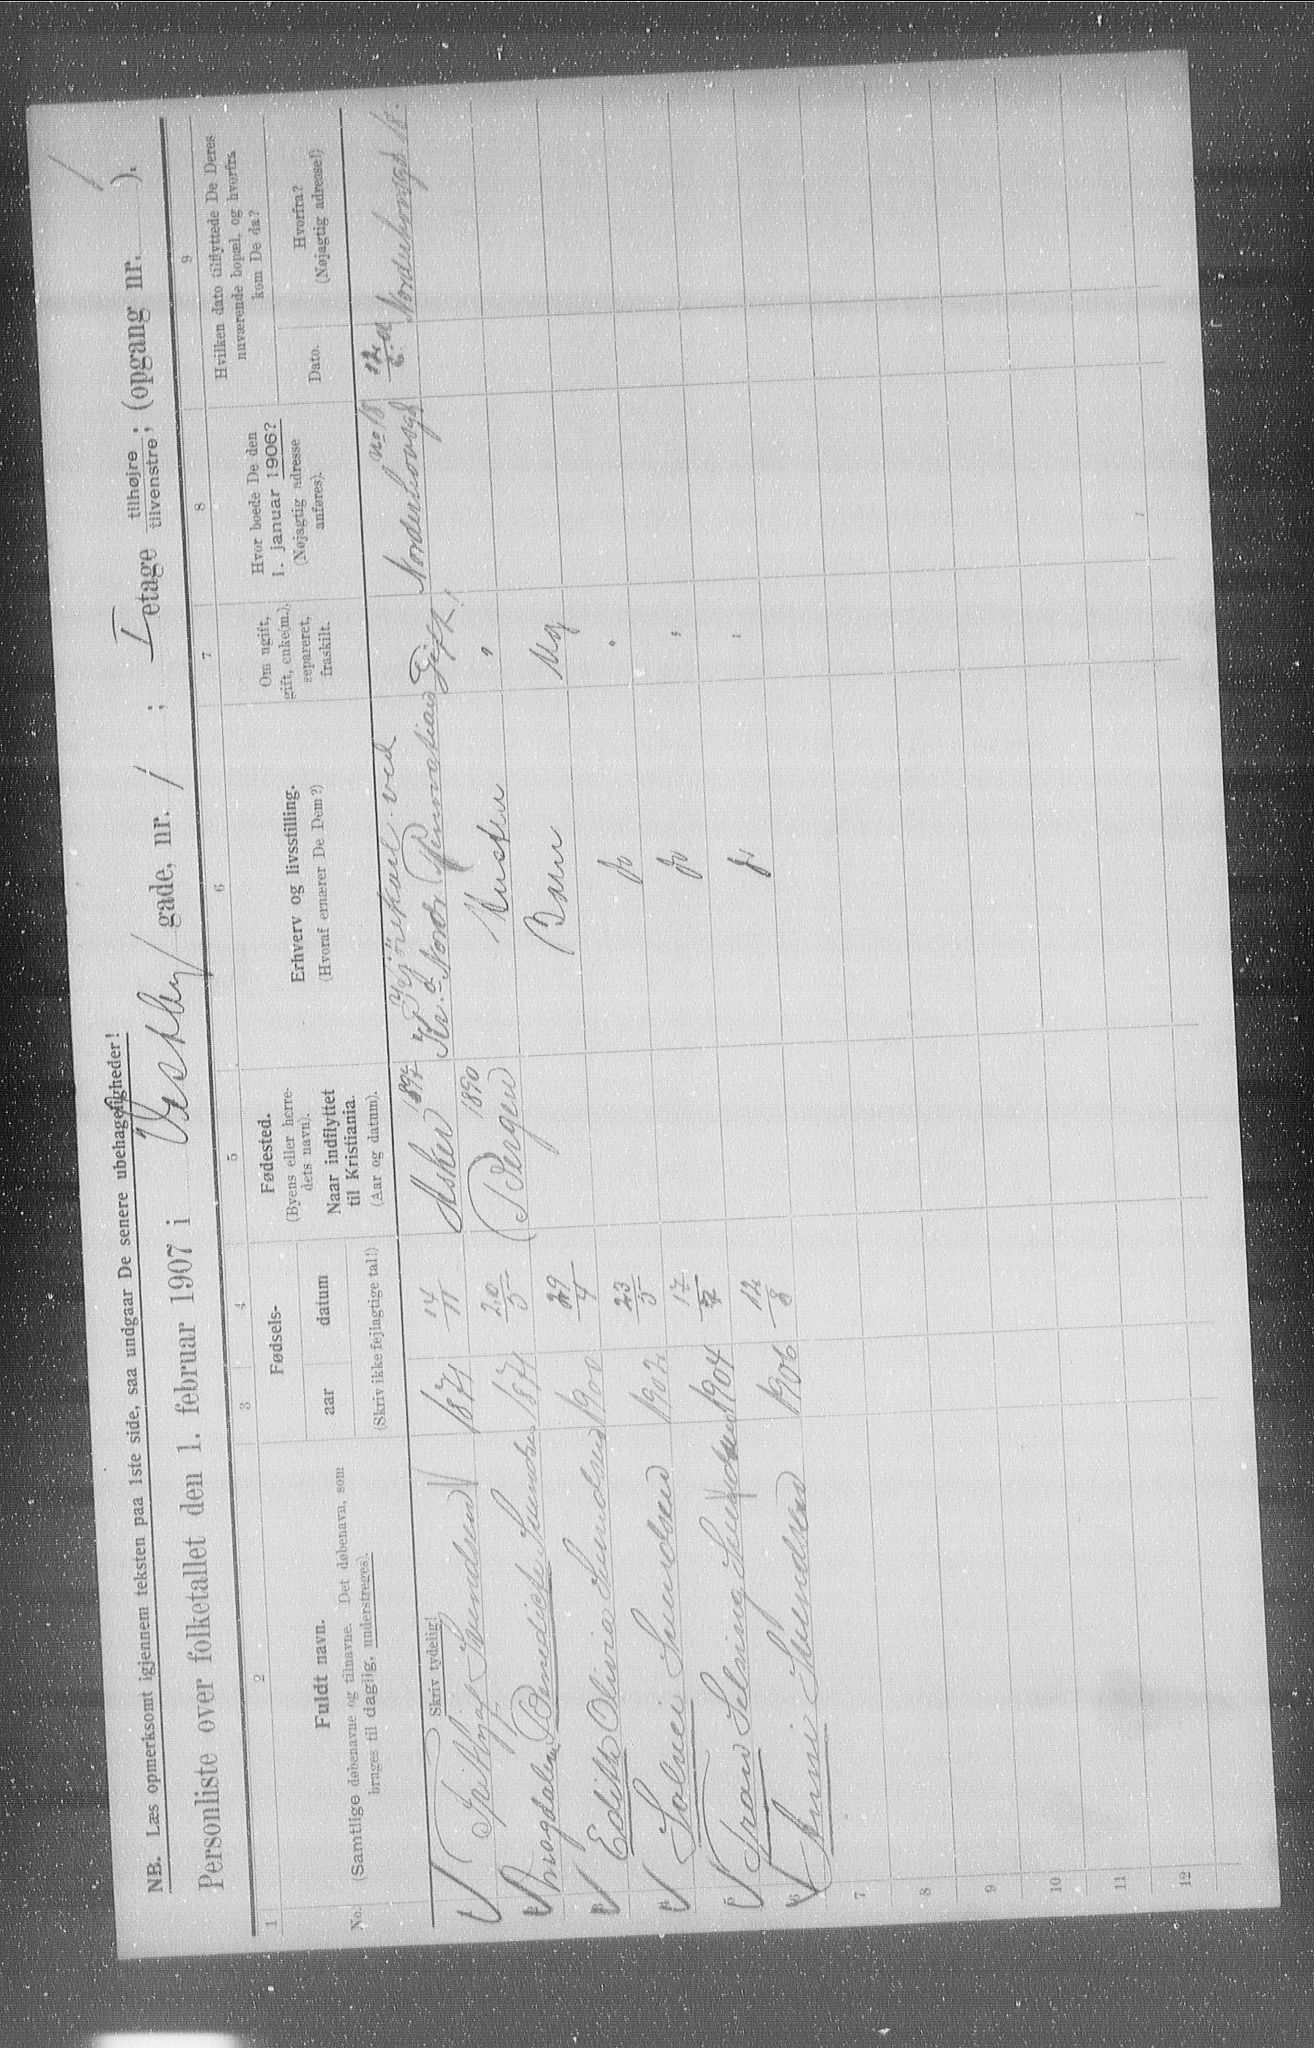 NB. Læs opmerksomt igjennem teksten paa 1ste side, saa undgaar De senere ubehageligheder!
Personliste over folketallet den 1. februar 1907 i Vestby gade, nr. 1 ; I etage tilhøjre, tilvenstre, (opgang nr. ).
1 2 3 4 5 6 7 8 9
No.
Fuldt navn.
(Samtlige døbenavne og tilnavne. Det døbenavn, som
bruges til daglig, understreges).
Skriv tydelig!
Fødsels-
aar datum
(Skriv ikke fejlagtige tal!)
Fødested.
(Byens eller herre-
dets navn).
Naar indflyttet
til Kristiania.
(Aar og datum).
Erhverv og livsstilling.
(Hvoraf ernærer De Dem?)
Om ugift,
gift, enke(m.),
separeret,
fraskilt.
Hvor boede De den
1. januar 1906?
(Nøjagtig adresse
anføres).
Hvilken dato tilflyttede De Deres
nuværende bopæl, og hvorfra
kom De da?
Dato.
Hvorfra?
(Nøjagtig adresse!)
1 Svendsen 1871 14/11 Asker ved Kr.a Gift Norderhovsgd no 18 Norderhovsgd 18.
2 Magdalene Benedicte Svendsen 1871 20/5 Bergen 1890 Hustru "
3 Edith Olivia Svendsen 1900 29/4 Barn Ug
4 Solvei Svendsen 1902 23/5 "
5 Svendsen 1904 "
6 Svendsen 1906 "
7
8
9
10
11
12